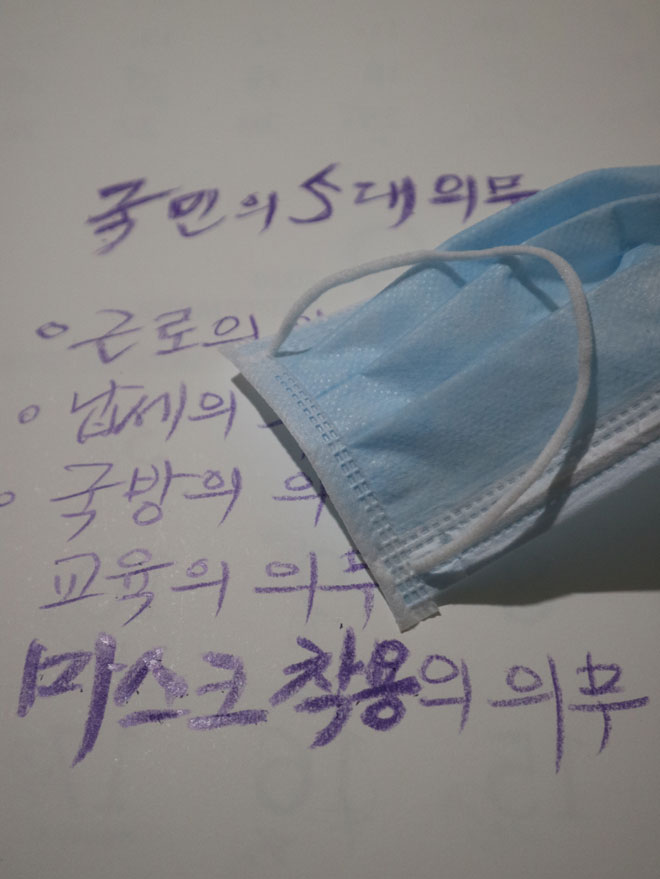 국민의 5대 의무
근로의
납세의
국방의 의
교육의 의무
마스크 착용의 의무